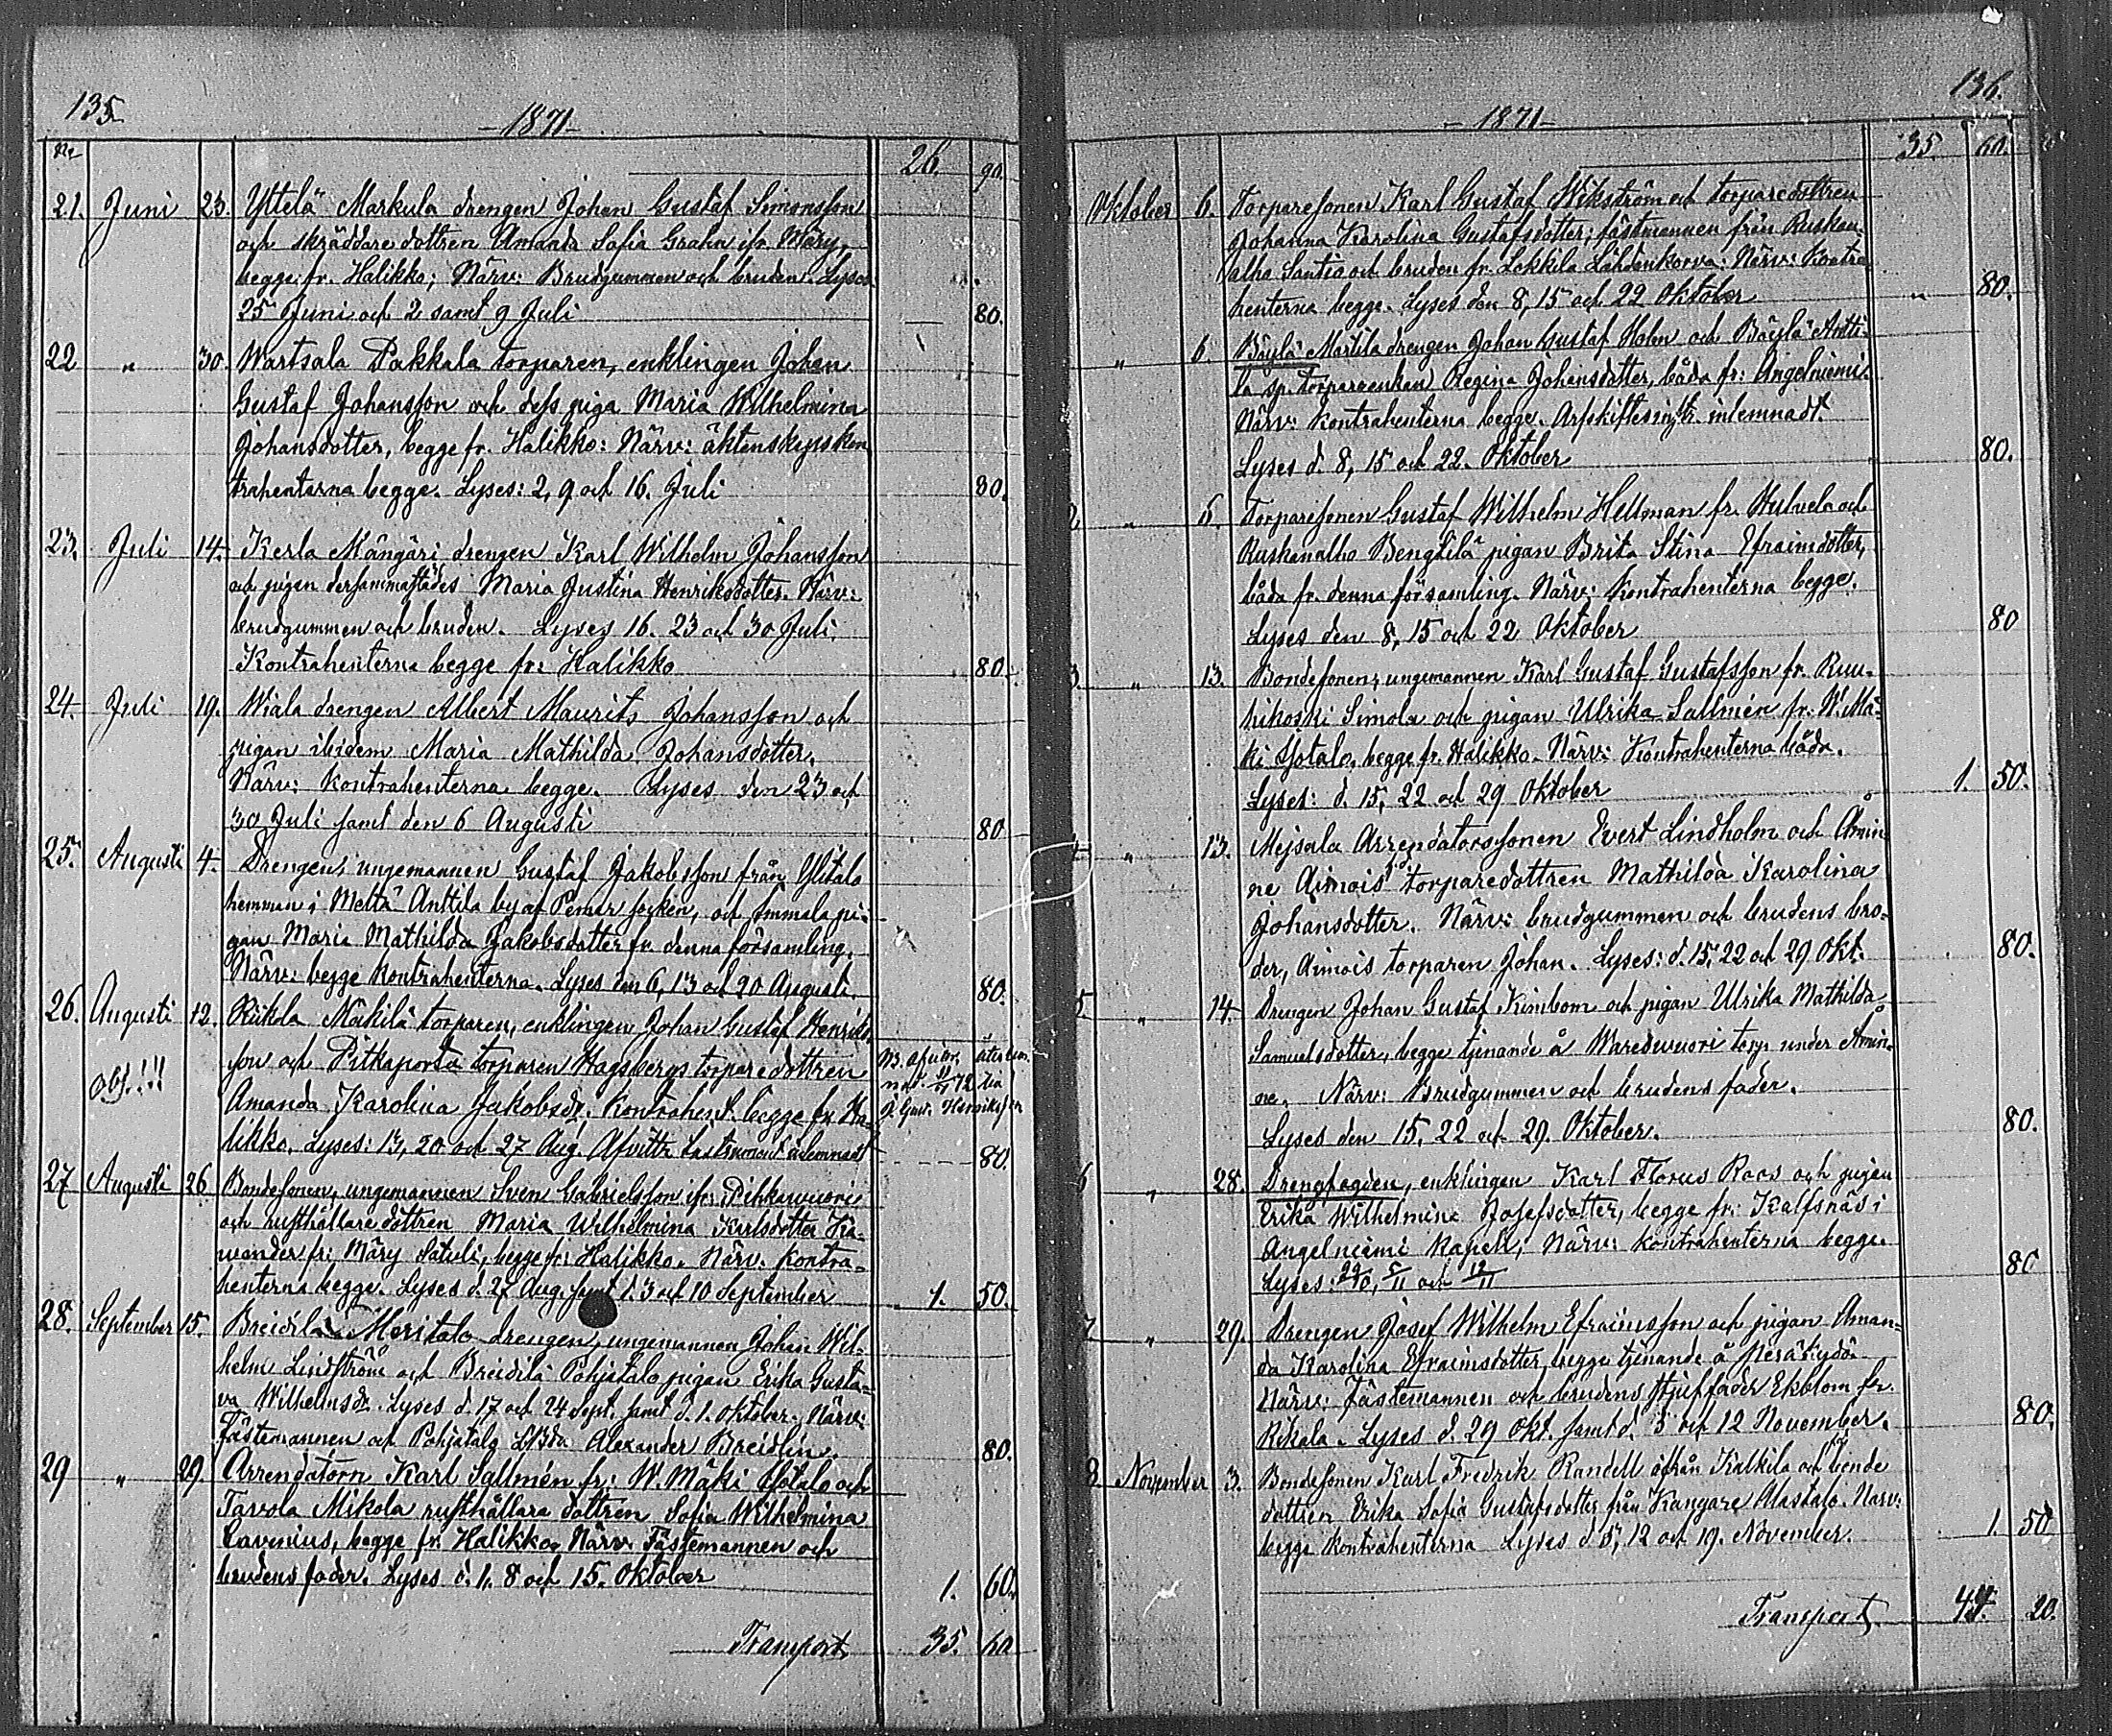 135.
- 1871 -
No 26. 90.
21. Juni 23. Yttelä Markula drengen Johan Gustaf Simonsson
och skräddare dottren Amanda Sofia Grahn ifr. Märy,
begge fr. Halikko; Närv: Brudgummen och bruden. Lyses
25 Juni och 2 samt 9 Juli — 80.
22 " 30. Wartsala Pakkala torparen, enklingen Johan
Gustaf Johansson och dess piga Maria Wilhelmina
Johansdotter, begge fr. Halikko: Närv: äktenskapskon
trahenterna begge. Lyses: 2, 9 och 16. Juli 80.
23. Juli 14. Kerla Mångäri drengen Karl Wilhelm Johansson
och pigan dersammastädes Maria Justina Henriksdotter. Närv:
brudgummen och bruden. Lyses 16. 23 och 30 Juli.
Kontrahenterna begge fr: Halikko 80.
24. Juli 19. Wiala drengen Albert Maurits Johansson och
pigan ibidem Maria Mathilda Johansdotter.
Närv: Kontrahenterna begge. Lyses den 23 och
30 Juli samt den 6 Augusti 80.
25. Augusti 4. Drengen, ungemannen Gustaf Jakobsson från Ylitalo
hemman i Meltä Anttila by af Pemar socken, och Immala pi-
gan Maria Mathilda Jakobsdotter fr. denna församling.
Närv: begge Kontrahenterna. Lyses den 6, 13 och 20 Augusti. 80.
26. Augusti 12. Riikola Mäkilä torparen, enklingen Johan Gustaf Henriks
obs!!! son och Pitkaporta torparen Hagsbergs torparedottren
Amanda Karolina Jakobsdr. Kontrahent. begge fr. Ha-
likko. Lyses: 13, 20 och 27 Aug. Afvittr. Instrument inlemnadt 80.
27 Augusti 26 Bondesonen, ungemannen Sven Gabrielsson ifr. Pihkawuori
och rusthållare dottren Maria Wilhelmina Karlsdotter Ka-
wander fr: Märy Satuli, begge fr: Halikko. Närv. Kontra-
henterna begge. Lyses d. 27 Aug. samt d. 3 och 10 September 1. 50.
28. September 15. Breidila Meritalo drengen, ungemannen Johan Wil-
helm Lindström och Breidilä Pohjatalo pigan Erika Gusta-
va Wilhelmsdr. Lyses d. 17 och 24 Sept. samt d. 1. Oktober. Närv:
Fästemannen och Pohjatalo Alexander Breidlin. 80.
29 " 29. Arrendatorn Karl Sallmén fr: W. Mäki Isotalo och
Tavola Mikola rusthållara dottren Sofia Wilhelmina
Cavenius, begge fr. Halikko. Närv. Fästemannen och
brudens fader. Lyses d. 1. 8 och 15. Oktober 1. 60.
Transport 35. 60
136.
- 1871 -
35. 60.
Oktober 6. Torparesonen Karl Gustaf Wikström och torparedottren
Johanna Karolina Gustafsdotter; fästmannen från Ruskan-
alho Santio och bruden fr. Lokkila Lähdenkorva: Närv: Kontra
henterna begge. Lyses den 8, 15 och 22 Oktober " 80.
" 6. Böylä Martila drengen Johan Gustaf Holm och Böylä Antti-
la sp. torpareenkan Regina Johansdotter, båda fr: Angelniemi.
Närv: Kontrahenterna begge. Arfskiftesinstr. inlemnadt
Lyses d. 8, 15 och 22. Oktober 80.
2 " 6. Torparesonen Gustaf Wilhelm Hellman fr. och
Ruskanalho Bengtilä pigan Brita Stina Efraimsdotter,
båda fr. denna församling. Närv: Kontrahenterna begge.
Lyses den 8, 15 och 22 Oktober 80
3. " 13. Bondesonen, ungemannen Karl Gustaf Gustafsson fr. Ruu-
hikoski Simola och pigan Ulrika Sallmén fr. W. Mä-
ki Isotalo, begge fr. Halikko. Närv: Kontrahenterna båda.
Lyses: d. 15, 22 och 29 Oktober 1. 50.
4 " 13. Mejsala Arrendatorssonen Evert Lindholm och Åmin
ne Aimois torparedottren Mathilda Karolina
Johansdotter. Närv: brudgummen och brudens bro-
der, Aimois torparen Johan. Lyses: d. 15, 22 och 29 Okt. 80.
5. " 14. Drengen Johan Gustaf Kimbom och pigan Ulrika Mathilda
Samuelsdotter, begge tjenande å Waredwuori torp under Åmin-
ne. Närv: Brudgummen och brudens fader.
Lyses den 15, 22 och 29. Oktober. 80.
6 " 28. Drengfogden, enklingen Karl Florus Roos och pigan
Erika Wilhelmina Josefsdotter, begge fr: Kalfsnäs i
Angelniemi Kapell, Närv: Kontrahenterna begge.
Lyses: 29/10, 5/11 och 12/11 80
7 " 29. Drengen Josef Wilhelm Efraimsson och pigan Aman-
da Karolina Efraimsdotter begge tjenande å Peräkydö
Närv: Fästemannen och brudens stjuffader Ekblom fr.
Rikala. Lyses d. 29 Okt. samt d. 5 och 12 November. 80.
8 November 3. Bondesonen Karl Fredrik Randell från Kalkila och bonde
dottren Erika Sofia Gustafsdotter från Kangare Alastalo. Narv:
begge Kontrahenterna Lyses d 5, 12 och 19. November. 1. 50
Transport 44. 20.